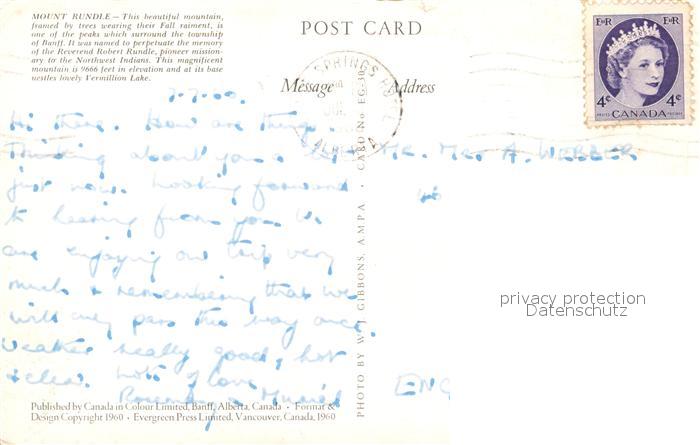 MOUNT RUNDLE — This beautiful mountain,
framed by trees wearing their Fall raiment, is
one of the peaks which surround the township
of Banff. It was named to perpetuate the memory
of the Reverend Robert Rundle, pioneer mission-
ary to the Northwest Indians. This magnificent
mountain is 9666 feet in elevation and at its base
nestles lovely Vermillion Lake.
POST CARD
Message
Address
SPRINGS HOTEL
ALBERTA
E R E R
4c 4c
CANADA
POSTES POSTAGE
7.7.60.
Hi there. How are things
Thinking about you
just now. Looking forward
to hearing from you. We
are enjoying our trip very
much & remembering that we
will only pass this way once.
Weather really good, hot
& clear. Lots of love
Rosemary & Muriel
Mr. Mrs A. WEBBER
ENG
PHOTO BY W. J. GIBBONS, A.M.P.A. • CARD No. EG-30
privacy protection
Datenschutz
Published by Canada in Colour Limited, Banff, Alberta, Canada • Format &
Design Copyright 1960 • Evergreen Press Limited, Vancouver, Canada, 1960